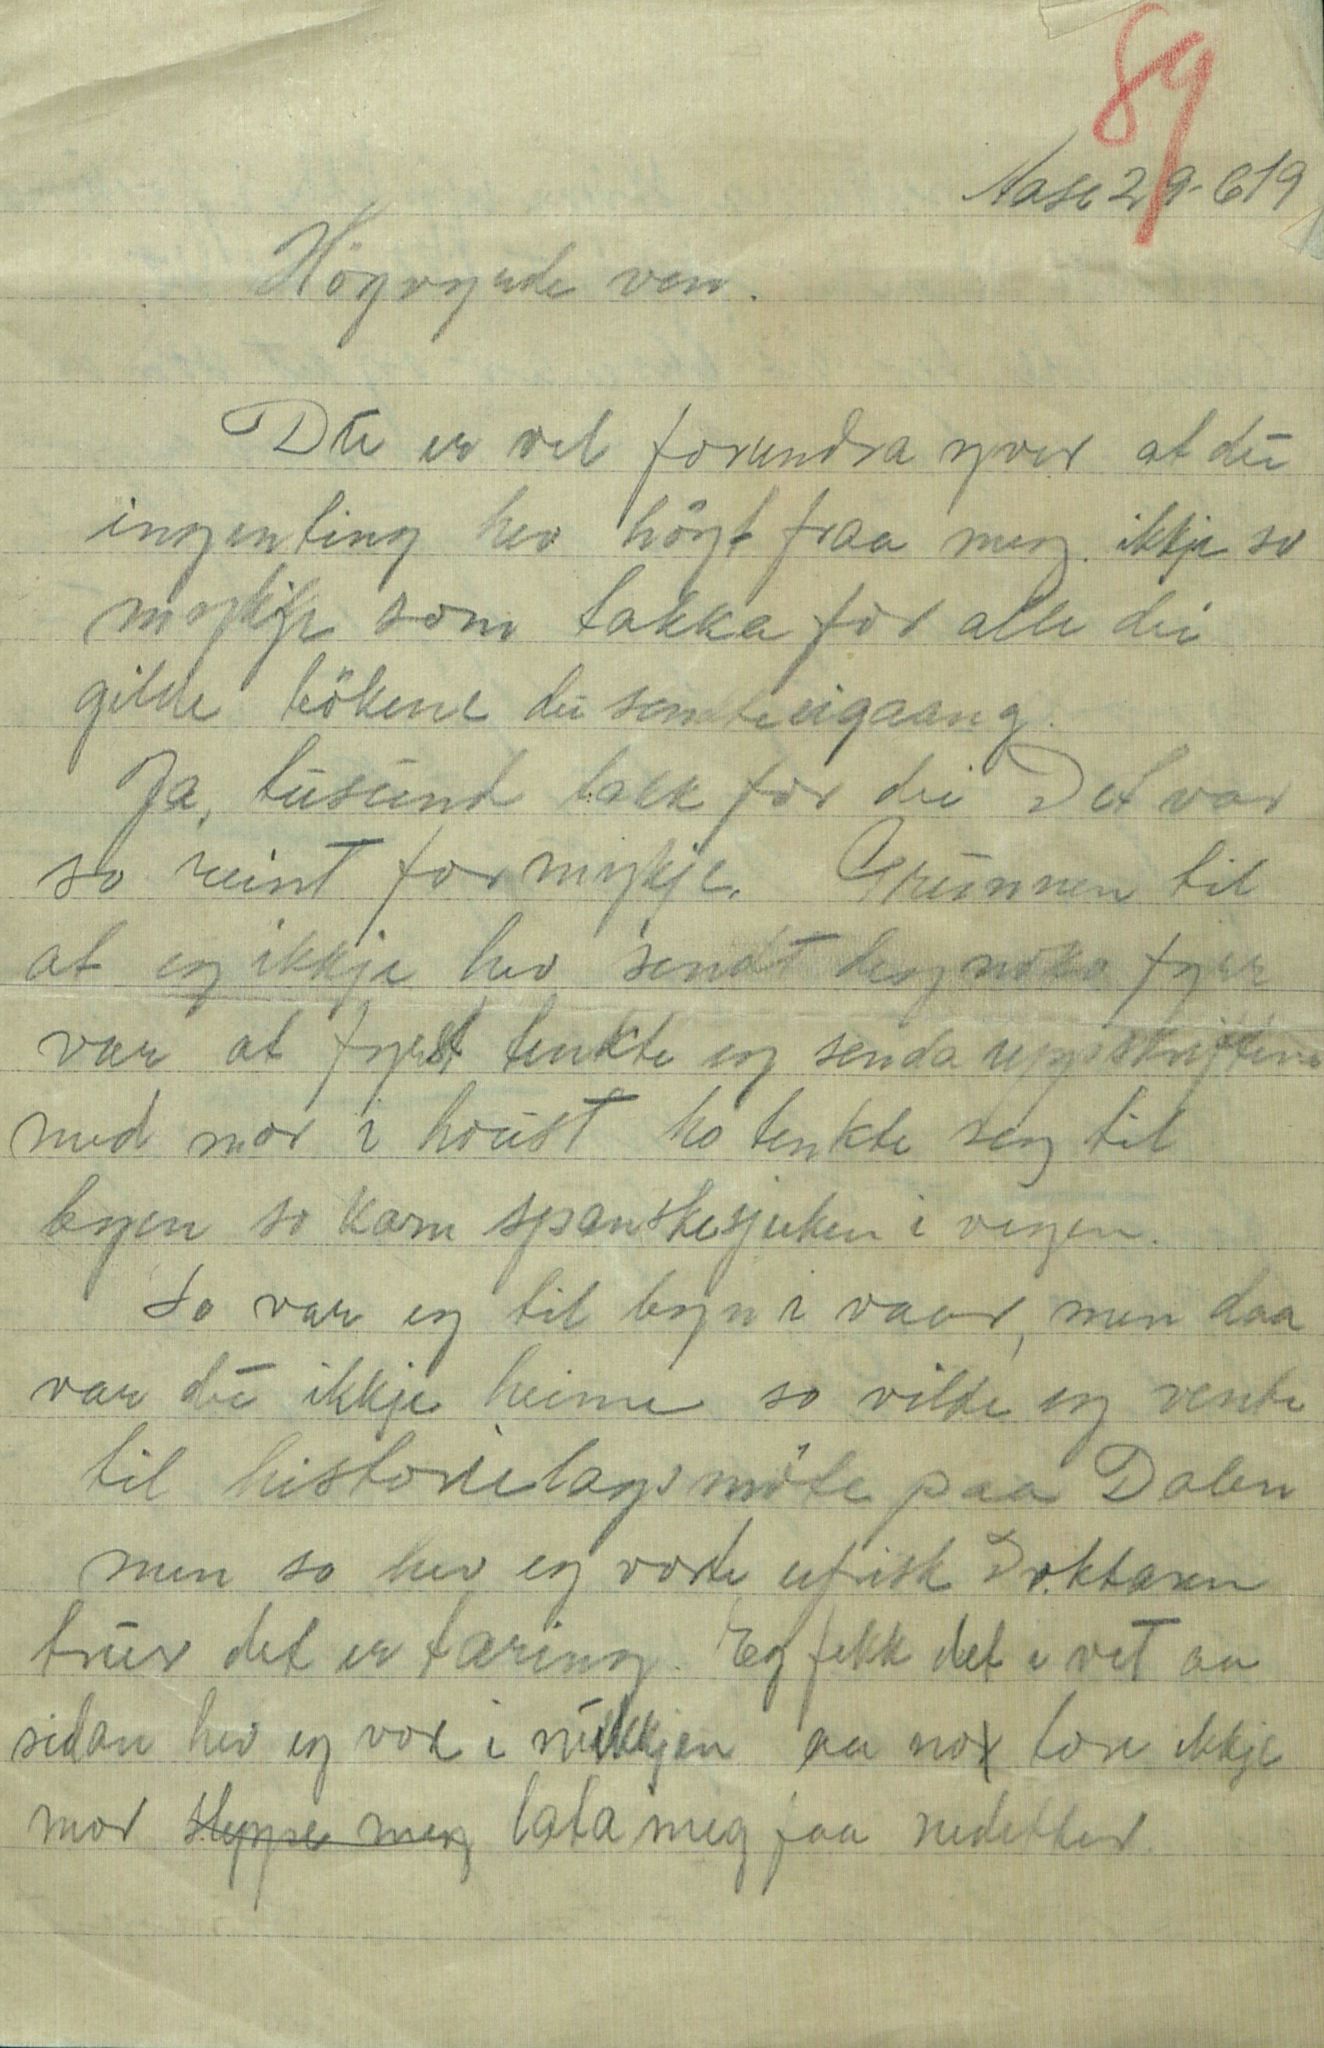 89
Aase 29-6 19
Högvyrde ven.
Du er vel forundra yver at du
ingenting hev höyrt fraa meg. ikkje so
mykje som takka for alle dei
gilde bökene du sende eigaang.
Ja, tusund takk for dei Det var
so reint for mykje. Grunnen til
at eg ikkje hev sendt deg noko fyrr
var at fyrst tenkte eg senda uppskriftene
med mor i haust ho tenkte seg til
byen so kom spanskesjuken i vegen.
So var eg til byn i vaar, men daa
var du ikkje heime so vilde eg vente
til historielagsmöte paa Dalen
men so hev eg vorte ufrisk Doktaren
trur det er tæring. Eg fekk det i vet aa
sidan hev eg vore i  aa no tore ikkje
mor sleppe meg lata meg faa nedetter.